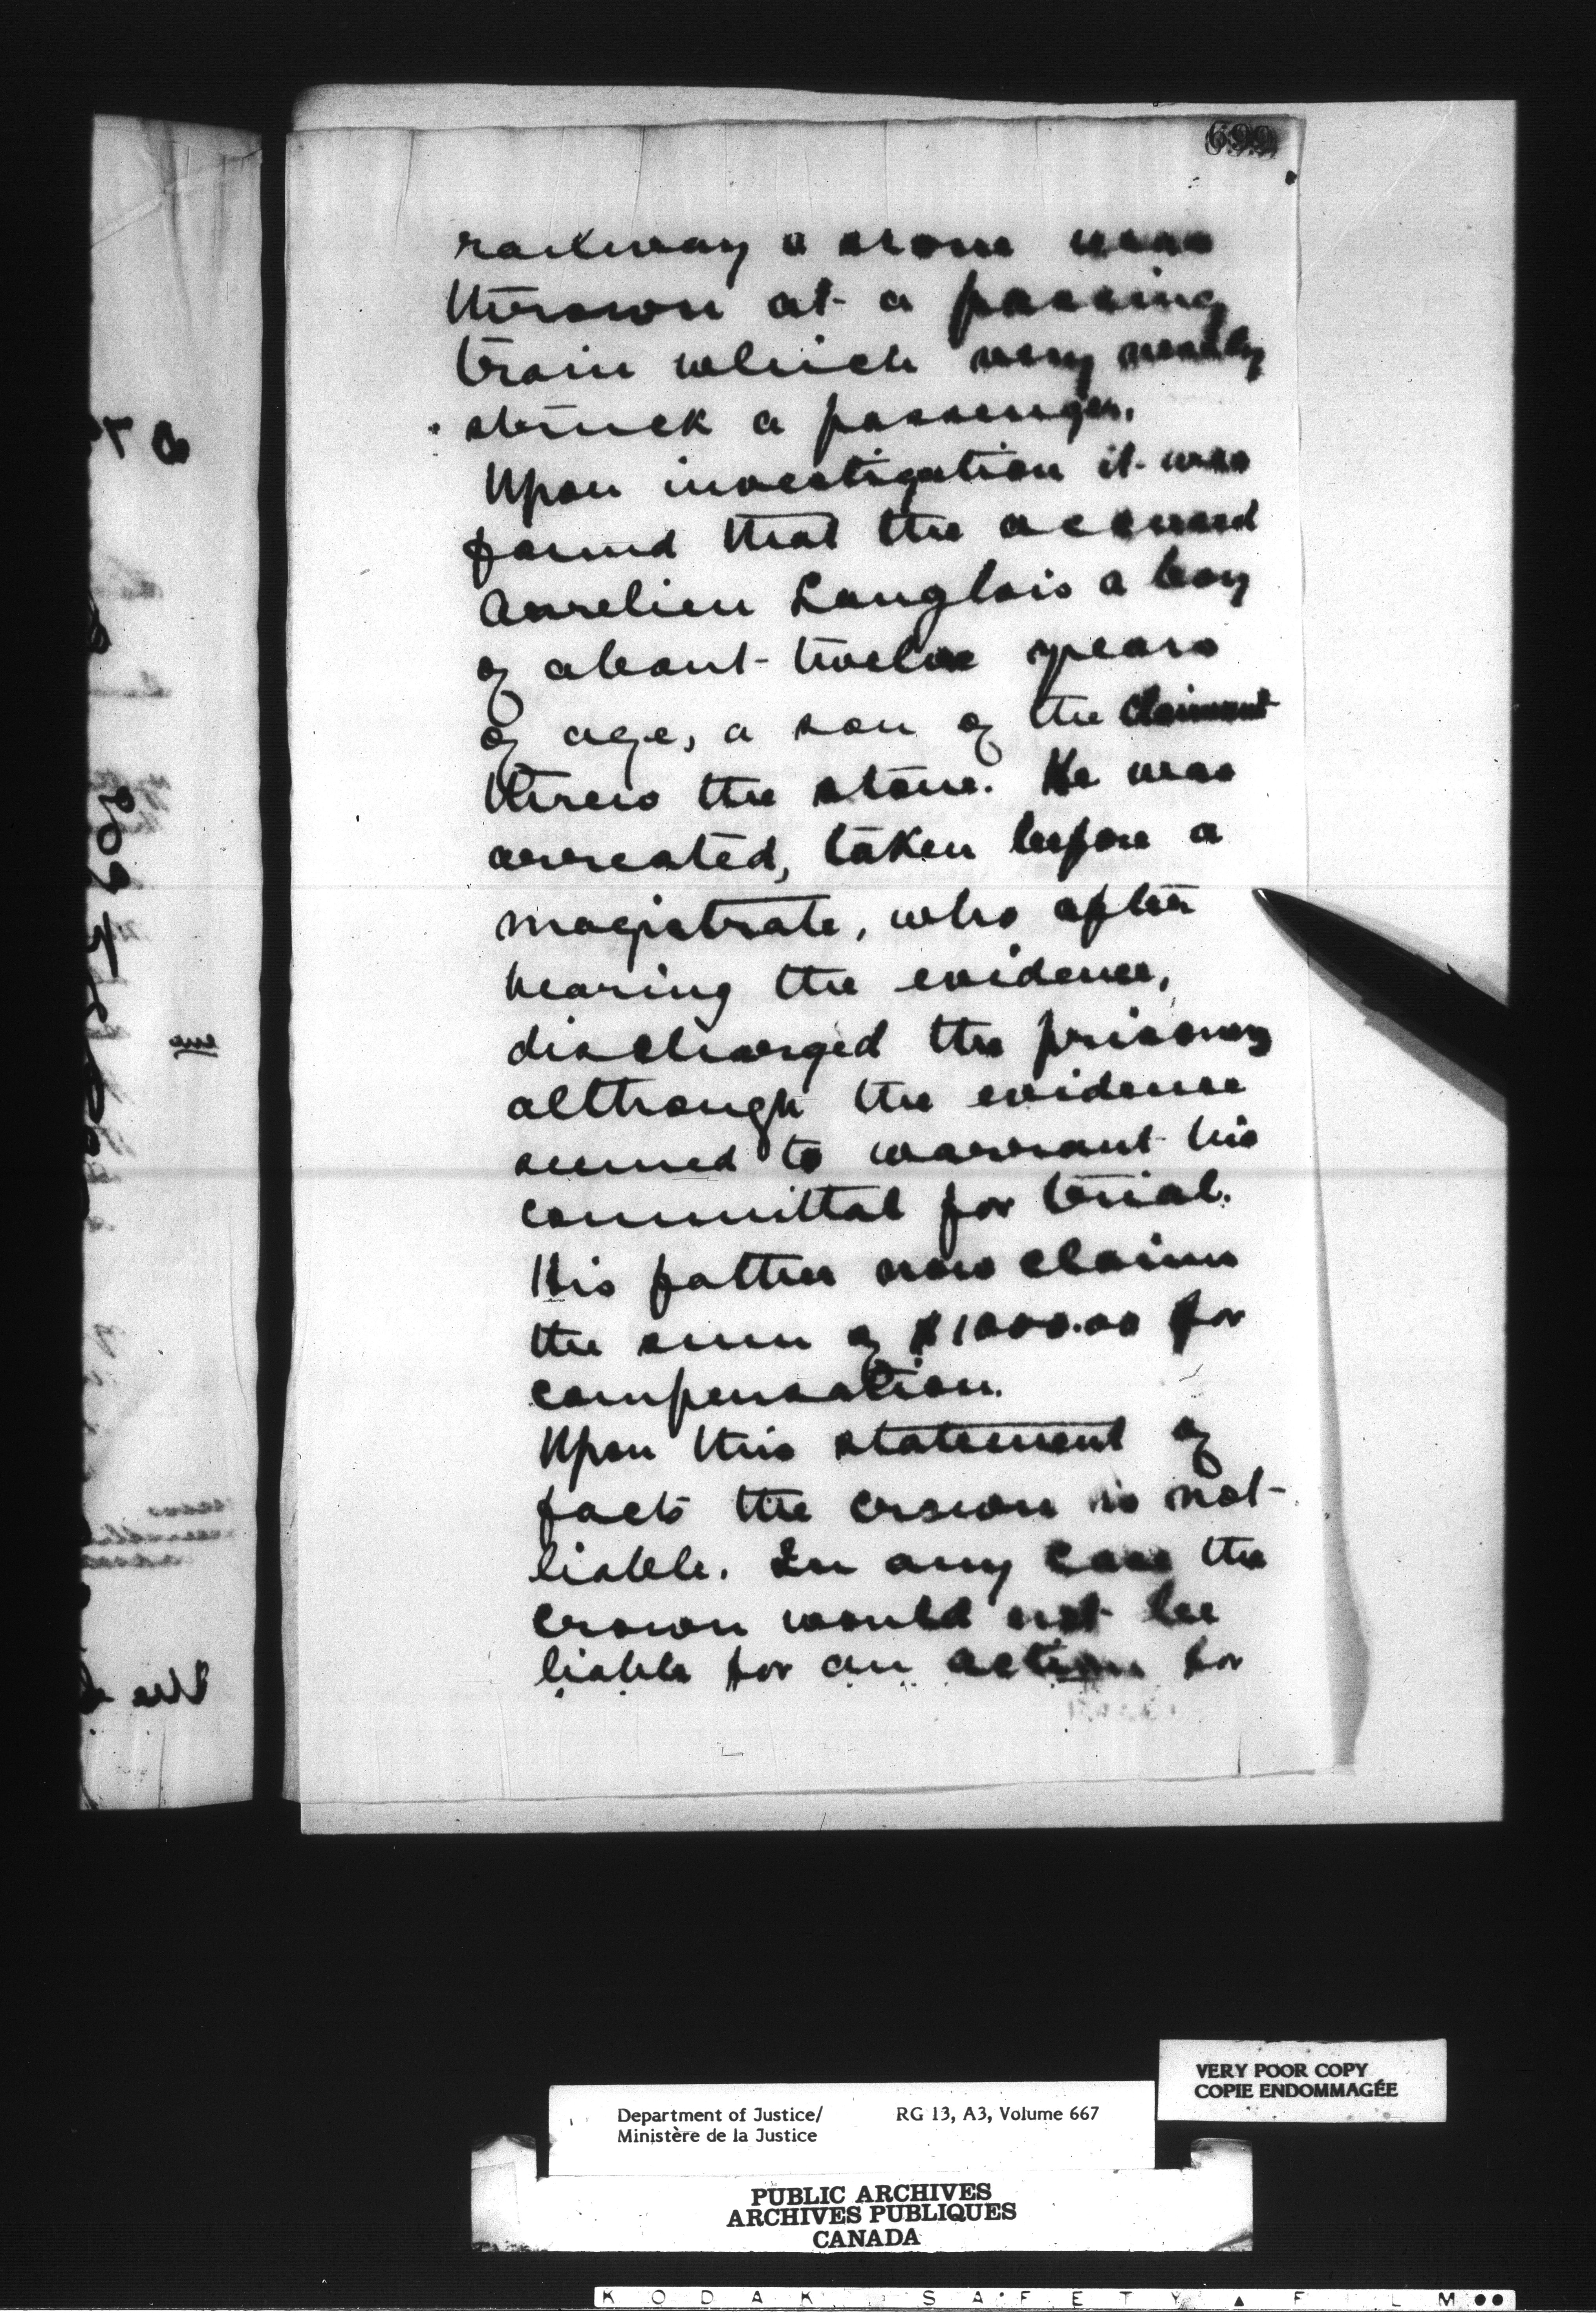 699
railway a stone was
thrown at a passing
train which very nearly
struck a passenger.
Upon investigation it was
found that the accused
Aurelien Langlois a boy
of about twelve years
of age, a son of the claimant
threw the stone. He was
arrested, taken before a
magistrate, who after
hearing the evidence,
discharged the prisoner
although the evidence
seemed to warrant his
committal for trial.
His father now claims
the sum of $1000.00 for
compensation.
Upon this statement of
facts the crown is not
liable. In any case the
crown would not be
liable for an action for
VERY POOR COPY
COPIE ENDOMMAGÉE
Department of Justice/ RG 13, A3, Volume 667
Ministère de la Justice
PUBLIC ARCHIVES
ARCHIVES PUBLIQUES
CANADA
KODAK SAFETY ▲ FILM